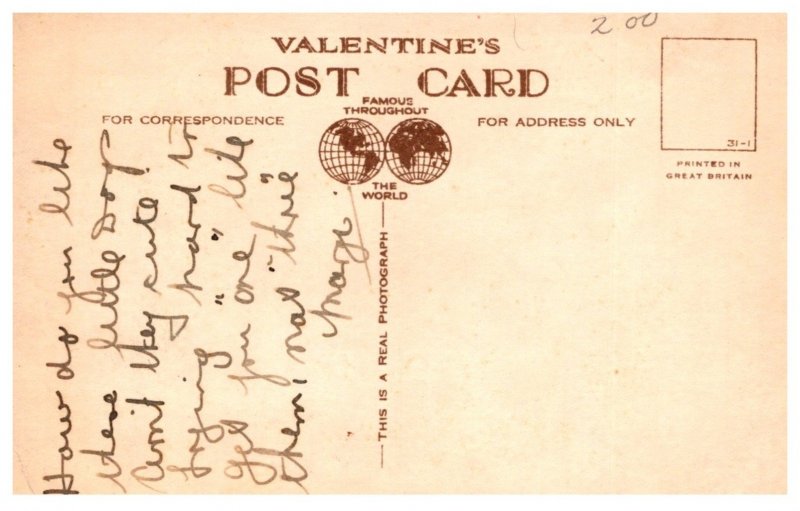 2 00
VALENTINE'S
POST CARD
FAMOUS
THROUGHOUT
THE
WORLD
FOR CORRESPONDENCE
FOR ADDRESS ONLY
31-1
PRINTED IN
GREAT BRITAIN
THIS IS A REAL PHOTOGRAPH
How do you like
these little Dogs
Arn't they cute?
trying hard to
get you "one" like
them, not "three"
Marge.